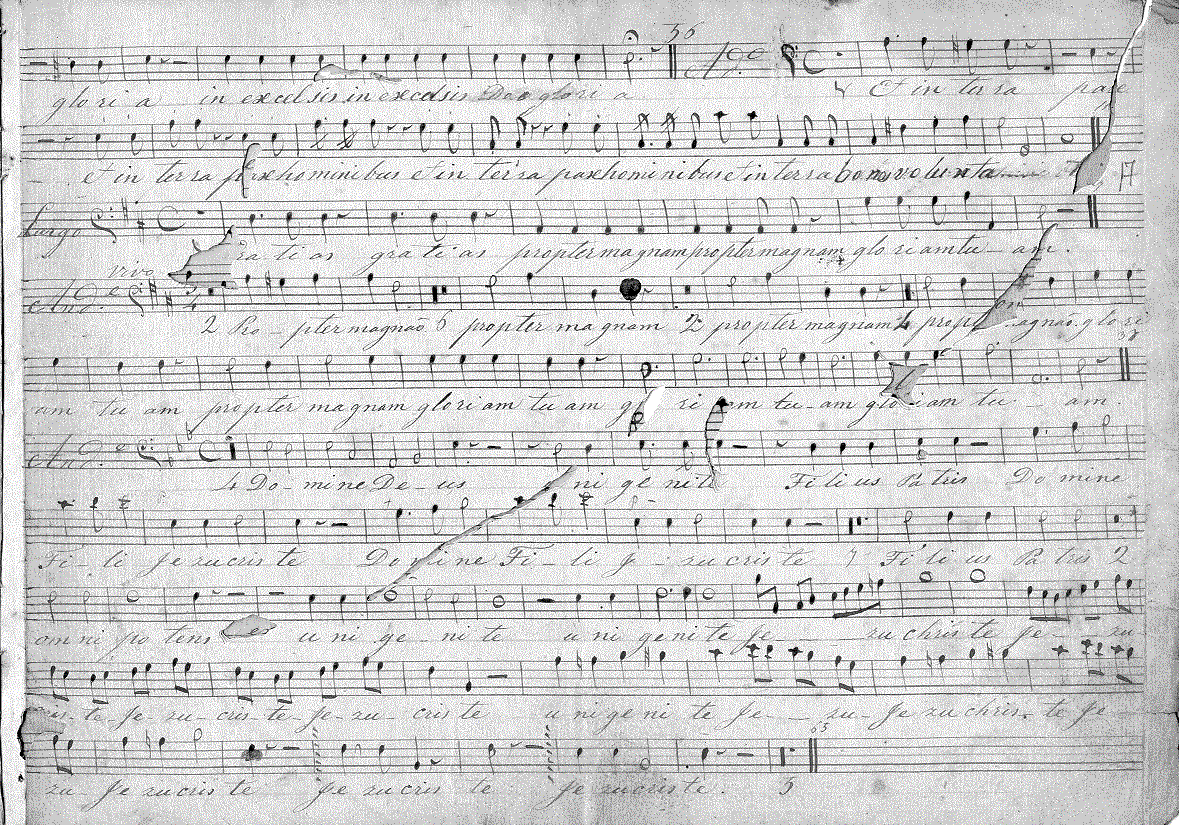 56
glo ri a in excelsis in excelsis Deo glori a Et in ter ra paxe
et in ter ra paxhominibus et in terra paxhominibus et in terra bone volunta
17
Largo
ra ti as gra ti as propter magnam propter magnam glo ri am tu _ am.
And.e vivo
2 Pro _ pter magnaõ 5 propter magnam 2 propter magnam 4 agnaõ. glo ri
am tu am propter magnam glo ri am tu am ri am tu _ am glo ri am tu _ am.
And.e
4 Do _ mine De _ us ni ge ni te Fi li us Pa tris Do mine
Fi _ li Je zu cris te Do mi ne Fi _ li J _ zu cris te 7 Fi li us Pa tris 2
om ni po tens u ni ge _ ni te u ni ge ni te Je _ _ zu chris te Je _ zu _
cris _ te _ Je _ zu _ cris _ te _ Je _ zu _ cris te u ni ge ni te Je _ _ zu _ Je zu chris _ te Je
65
zu _ Je zu cris te Je zu cris te Je zu cris te. 3